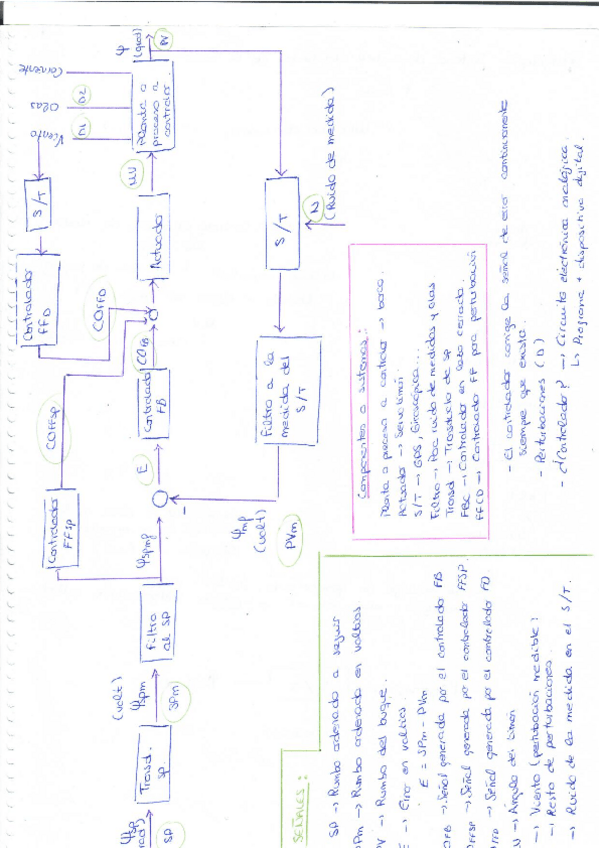 Ψsp
(grad)
SP
Transd.
SP.
Ψspm
(volt)
SPm
Filtro
al SP
Ψspmf
Controlador
FFSP
COFFSP
E
-
Controlador
FB
COFB
Controlador
FFD
COFFD
S/T
Actuador
MV
Planta o
proceso a
controlar
Viento
D1
Olas
D2
Corriente
Ψ
(grad)
PV
S/T
N
(Ruido de medida)
Filtro a la
medida del
S/T
Ψmf
(volt)
PVm
Componentes o sistemas:
Planta o proceso a controlar → barco.
Actuador → Servotimón
S/T → GPS, Giroscópica...
Filtro → Para ruido de medidas y olas
Transd → Transductor de SP
FBC → Controlador en lazo cerrado
FFCD → Controlador FF para perturbación
- El controlador corrige la señal de error continuamente
siempre que exista.
- Perturbaciones (D)
- ¿Controlador? → Circuito electrónica analógica.
↳ Programa + dispositivo digital.
SEÑALES:
SP → Rumbo ordenado a seguir
SPm → Rumbo ordenado en voltios
PV → Rumbo del buque.
E → Error en voltios
E = SPm - PVm
OFB → Señal generada por el controlado FB
OFFSP → Señal generada por el controlador FFSP.
→ Señal generada por el controlado FD
→ Angulo del timón
→ Viento (perturbación medible)
→ Resto de perturbaciones.
→ Ruido de la medida en el S/T.